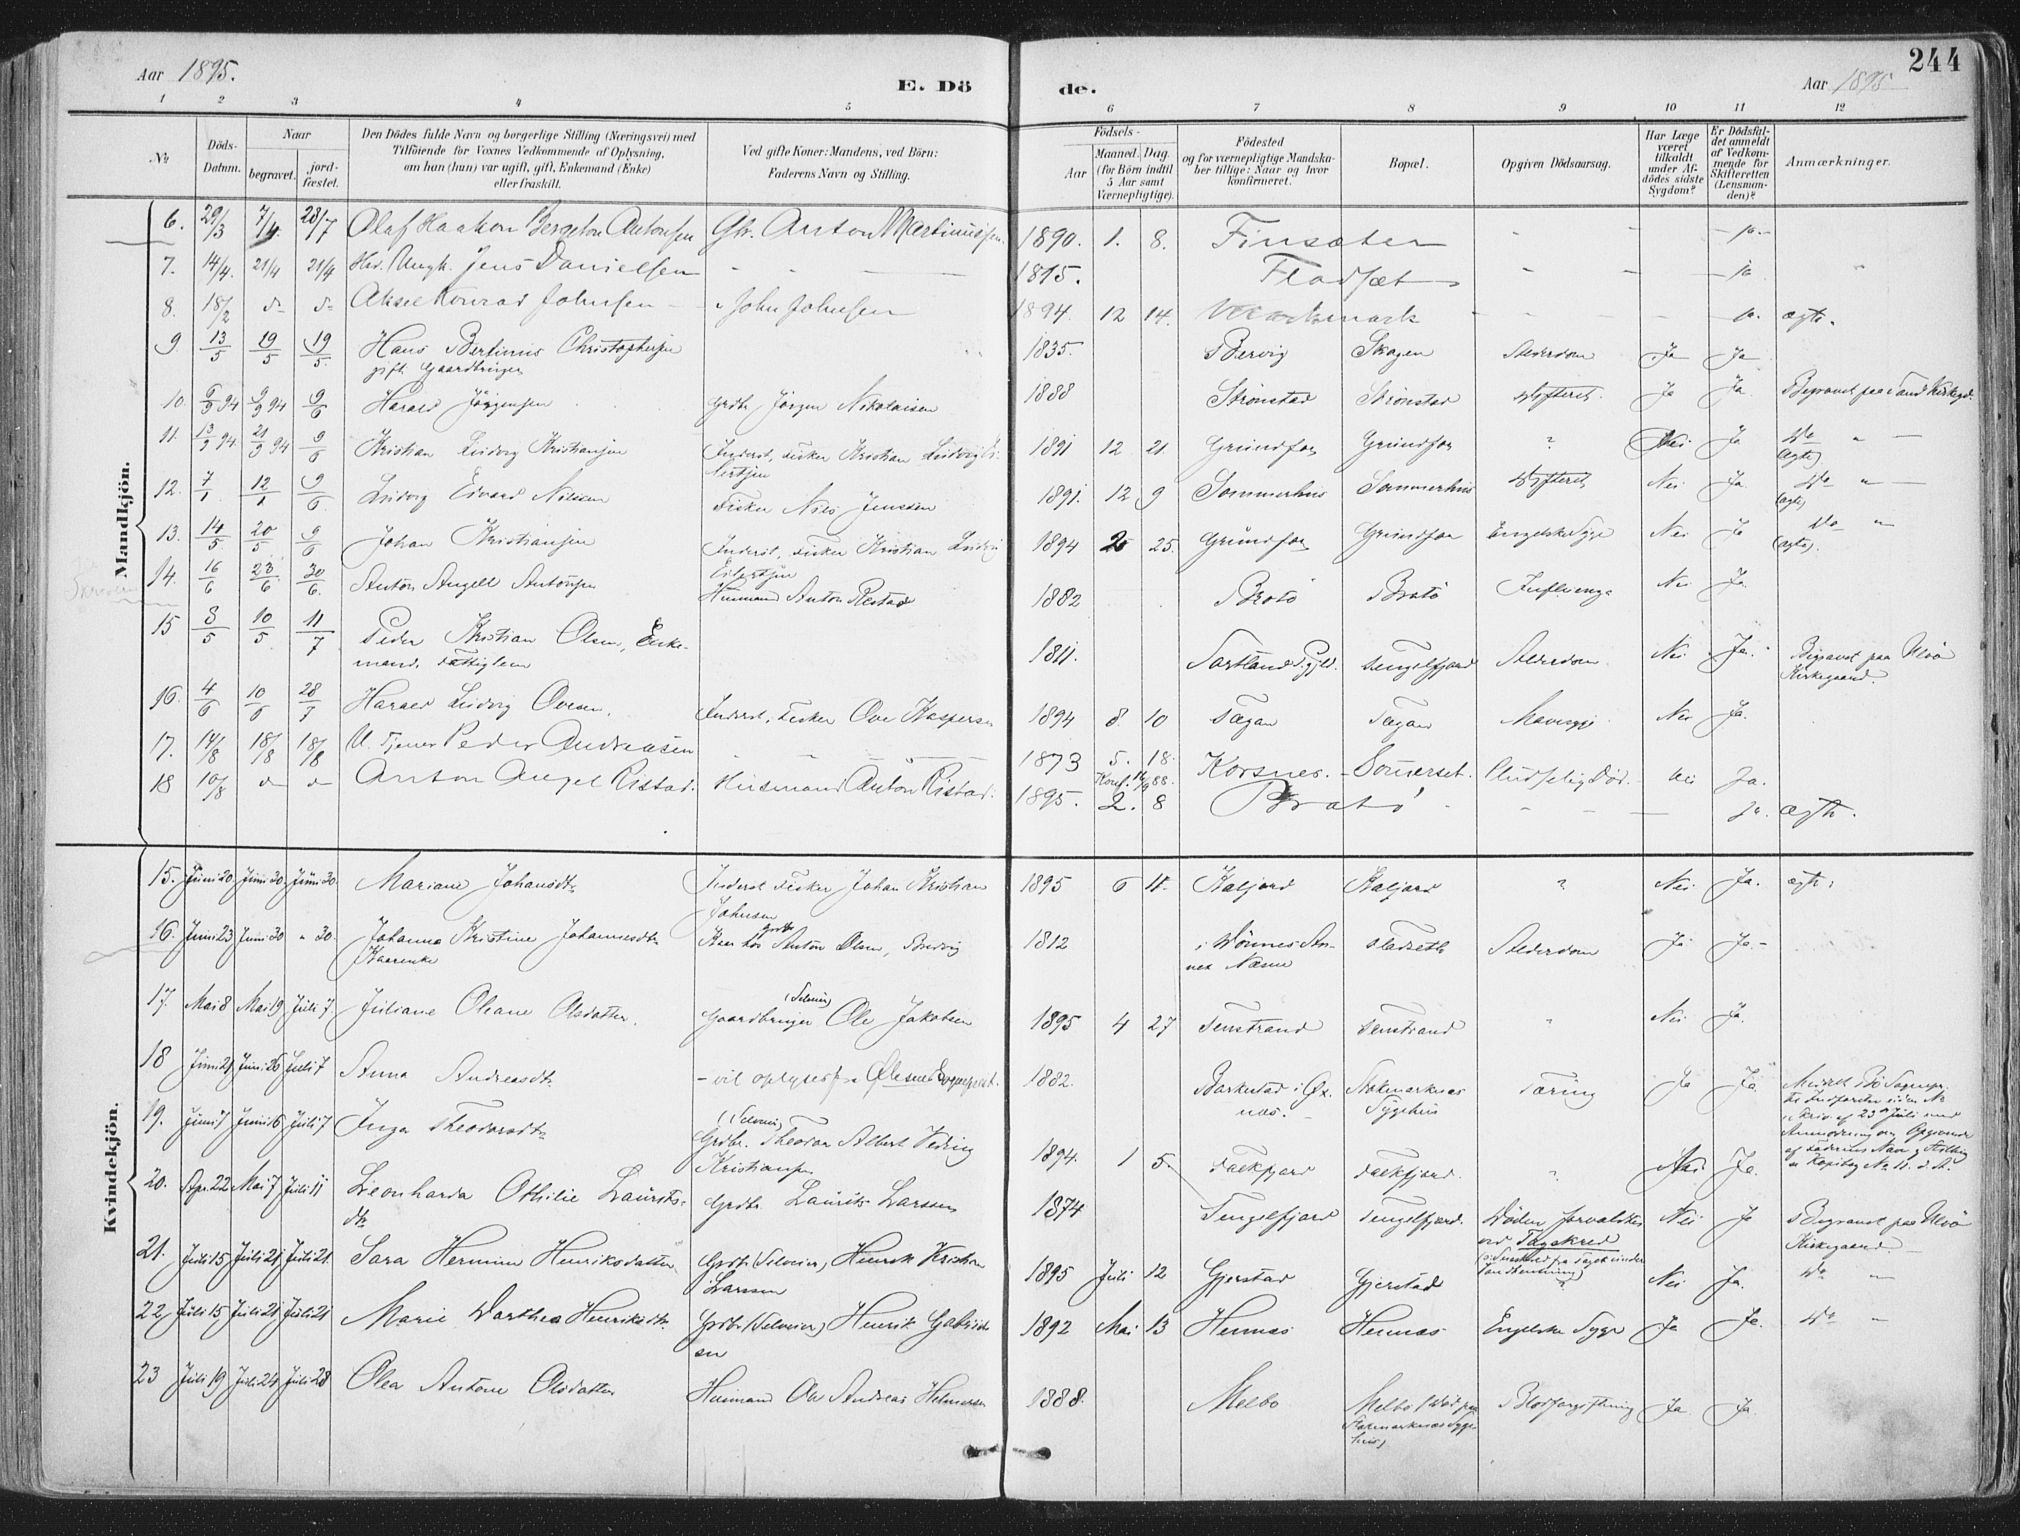 Aar 1895.
E. Dö
de.
Aar 1895
244
1 2 3 4 5 6 7 8 9 10 11 12
No
Döds-Datum.
Naar
begravet.
jord-fæstet.
Den Dödes fulde Navn og borgerlige Stilling (Næringsvei) med
Tilföiende for Voxnes Vedkommende af Oplysning,
om han (hun) var ugift, gift, Enkemand (Enke)
eller fraskilt.
Ved gifte Koner: Mandens, ved Börn:
Faderens Navn og Stilling.
Födsels-
Aar
Maaned. Dag.
(for Börn indtil
5 Aar samt
Værnepligtige).
Födested
og for værnepligtige Mandska-
ber tillige: Naar og hvor
konfirmeret.
Bopæl.
Opgiven Dödsaarsag.
Har Læge
været
tilkaldt
under Af-
dödes sidste
Sygdom?
Er Dödsfal-
det anmeldt
af Vedkom-
mende for
Skifteretten
(Lensman-
den)?
Anmærkninger.
Mandkjön.
6. 29/3 7/4 28/7 Olaf Haakon Bergeton Antonsen Gbr. Anton Martinussen 1890. 1. 8. Finsæter
7. 14/4. 21/4 21/4 Jens Danielsen 1815. Fladsæt
8. 18/2 Aksel Konrad Johnsen John Johnsen 1894. 12 14. ægte.
9 13/5 19/5 19/5. Hans Bertinus Christophersen
gift Gaardbruger
1835. Bervig Skagen Alderdom Ja Ja
10. 6/9 94 9/9 94 9/6 Harald Jörgensen Grdbr Jörgen Nikolaisen 1888 Strönstad Strönstad Ja Ja. Begravet paa Sand Kirkegd.
11. 13/9 94. 21/9 94 9/6 Kristian Ludvig Kristiansen Inderst, Fisker Kristian Ludvig Ei-
lertsen
1891 12 21. Grundfor Grundfor ? Nei Ja Do " —
(ægte)
12. 7/1 12/1 9/6. Ludvig Edvard Nilsen Fisker Nils Jensen 1891. 12 9 Sommerhus Sommerhus Nei Ja. Do " —
(ægte)
13. 14/5 20/5 9/6 Johan Kristiansen Inderst, Fisker Kristian Ludvig
Eilertsen
1894 2 25. Grundfor Grundfor Engelske Syge Nei Ja Do "
(ægte).
14. 16/6 23/6 30/6. Anton Angell Antonsen Husmand Anton Restad 1882 Brotö Brotö Influenza Nei Ja.
15 8/5 10/5 11/7 Peder Kristian Olsen, Enke-
mand. Fattiglem
1811. Sortland Pgjld. Tengelfjord Alderdom. Nei Ja. Begravet paa Ulvö
Kirkegaard.
16. 4/6 10/6 28/7 Harald Ludvig Ovesen. Inderst, Fisker Ove Kaspersen 1894 8 10 Fagan Fagan Mavesyge Nei Ja.
17. 14/8 18/8 18/8 U. Tjener Peder Andreasen 1873 5. 18. Korsnes. Somerset. Pludselig Död. Nei Ja.
Konf. 16/9 88.
18 10/8 Anton Angel Ristad. Husmand Anton Ristad. 1895. 2. 8 Brotö Ja. ægte.
Kvindekjön.
15. Juni 20. Juni 30. Juni 30. Mariane Johansdtr Inderst Fisker Johan Kristian
Johnsen
1895 6 11. Kaljord Kaljord ? Nei Ja. ægte.
16. Juni 23 Juni 30 " 30. Johanna Kristine Johannesdtr
Kaarenke
hos Anton Olsen, Budvig 1812 i Dönnes An-
nex Næsne
Fladseth Alderdom Ja Ja —
17. Mai 8 Mai 19 Juli 7 Juliane Oleane Olsdatter. (Selveier)
Gaardbruger Ole Jakobsen
1895 4 27 Tenstrand Tenstrand " Nei Ja.
18 Juni 21 Juni 26 Juli 7 Anna Andreasdtr — vil oplyses fra Öksnes Sogneprest. 1882. Barkestad i Öx-
nes. —
Stokmarknæs
Sygehus
Tæring Ja Ja
19. Juni 7 Juni 16 Juli 7 Inga Theodorsdtr (Selveier)
Grdbr. Theodor Albert Hedvig
Kristiansen
1894. 1 5. Falkfjord Falkfjord. ? Nei Ja.
20. Apr. 22 Mai 7 Juli 11 Leonharda Othilie Laurits-
dtr
Grdbr Laurits Larsen 1874 Tengelfjord Tengelfjord. Döden forvoldtes
ved Tagskred
Nei Ja Begravet paa Ulvö
Kirkegaard. —
21. Juli 15 Juli 21 Juli 21. Sara Hermine Henriksdatter Grdbr (Selveier) Henrik Kristian
Larssen
1895 Juli 12 Gjerstad Gjerstad ? Nei Ja. Do "
22 Juli 15 Juli 21 Juli 21 Marie Dorthea Henriksdtr. Grdbr (Selveier) Henrik Gabriel-
sen
1892 Mai 13 Hennes Hennes Engelske Syge Ja Ja. Do "
23 Juli 19 Juli 24 Juli 28 Olea Antone Olsdatter Husmand Ole Andreas Helmersen 1888. Melbo Melbo (Död paa
Stokmarknæs Syge-
hus)
Blodforgiftning Ja Ja.